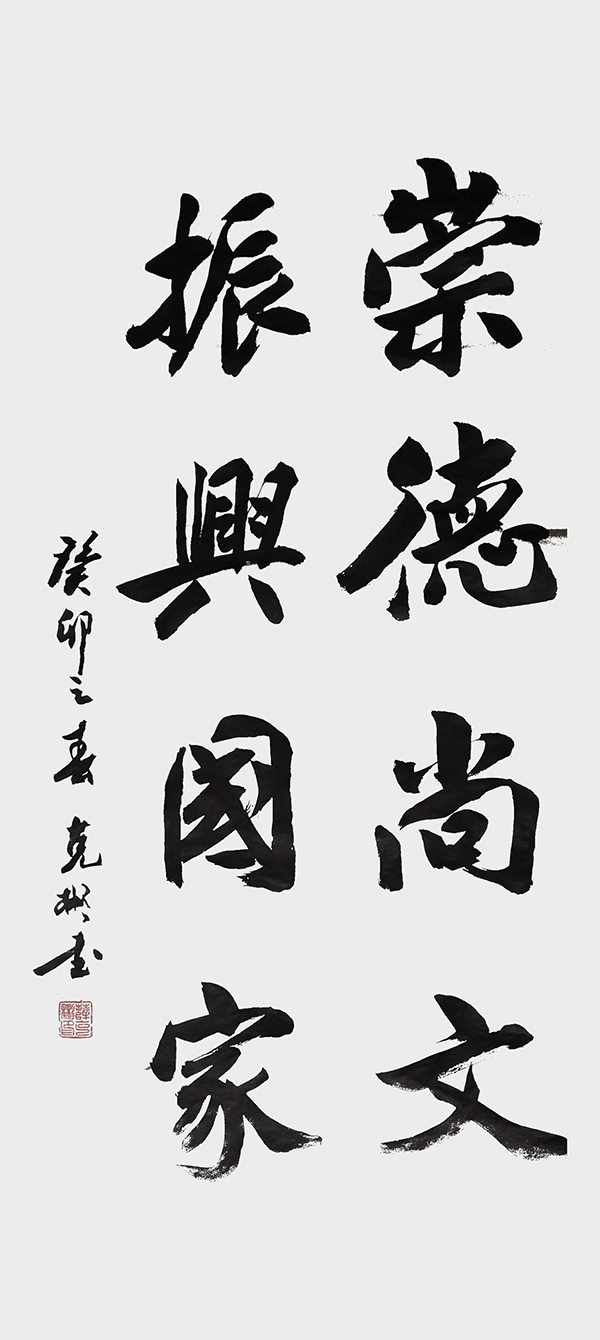 崇德尚文
振興國家
癸卯之春 克彬书